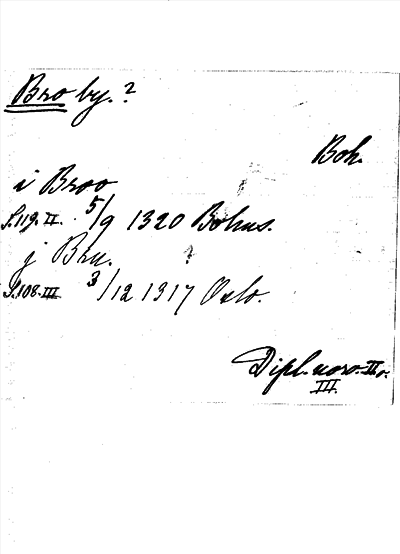 Bro by. ?
Boh.
i Broo
S.119. II. 5/9 1320 Bohus.
j Bru.
S.108. III 3/12 1317 Oslo.
Dipl. norv. II o.
III.